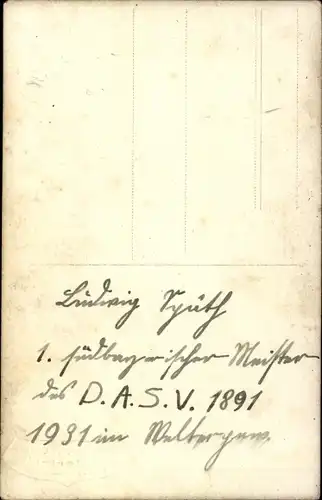 Ludwig Späth
1. südbayrischer Meister
des D.A.S.V. 1891
1931 im Weltergew.